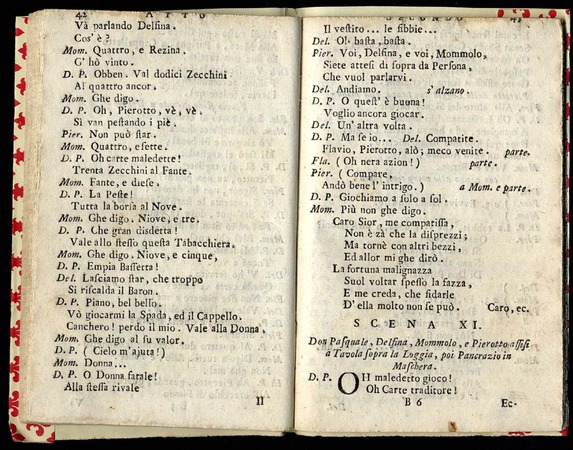 42 A T T O
Và parlando Delfina.
Cos' è?
Mom. Quattro, e Rezina.
G' hò vinto.
D. P. Obben. Val dodici Zecchini
Al quattro ancor.
Mom. Ghe digo.
D. P. Oh, Pierotto, vè, vè.
Sì van pestando i piè.
Pier. Non può star.
Mom. Quattro, e sette.
D. P. Oh carte maledette!
Trenta Zecchini al Fante.
Mom. Fante, e diese.
D. P. La Peste!
Tutta la borsa al Nove.
Mom. Ghe digo. Niove, e tre.
D. P. Che gran disdetta!
Vale allo stesso questa Tabacchiera.
Mom. Ghe digo. Niove, e cinque,
D. P. Empia Bassetta!
Del. Lasciamo star, che troppo
Si riscalda il Baron.
D. P. Piano, bel bello.
Vò giocarmi la Spada, ed il Cappello.
Canchero! perdo il mio. Vale alla Donna.
Mom. Ghe digo al su valor.
D. P. ( Cielo m'ajuta!)
Mom. Donna...
D. P. O Donna fatale!
Alla stessa rivale
Il
SECONDO
Il vestito... le fibbie...
Del. Ol basta, basta.
Pier. Voi, Delfina, e voi, Mommolo,
Siete attesi di sopra da Persona,
Che vuol parlarvi.
Del. Andiamo. s' alzano.
D. P. O quest' è buona!
Voglio ancora giocar.
Del. Un' altra volta.
D. P. Ma se io... Del. Compatite.
Flavio, Pierotto, alò; meco venite. parte.
Fla. ( Oh nera azion!) parte.
Pier. ( Compare,
Andò bene l' intrigo.) a Mom. e parte.
D. P. Giochiamo a solo a sol.
Mom. Più non ghe digo.
Caro Sior, me compatissa,
Non è zà che la disprezzi;
Ma tornè con altri bezzi,
Ed allor mi ghe dirò.
La fortuna malignazza
Suol voltar spesso la fazza,
E me creda, che fidarle
D' ella molto non se può. Caro, ec.
SCENA XI.
Don Pasquale, Delfina, Mommolo, e Pierotto assisi
à Tavola sopra la Loggia, poi Pancrazio in
Maschera.
D. P. OH maledetto gioco!
Oh Carte traditore!
B 6 Ec-